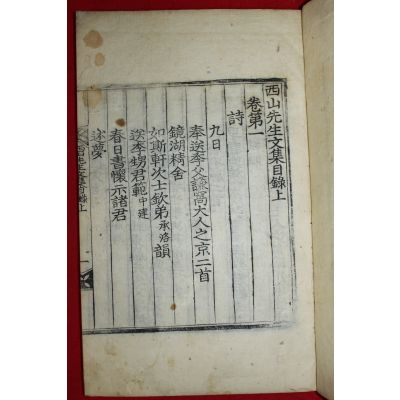 西山先生文集目錄上
卷第一
詩
九日
奉送李父謙窩大人之京二首
鏡湖精舍
如斯軒次士欽弟承洛韻
送李甥君範中建
春日書懷示諸君
述夢
西山先生文集目錄上